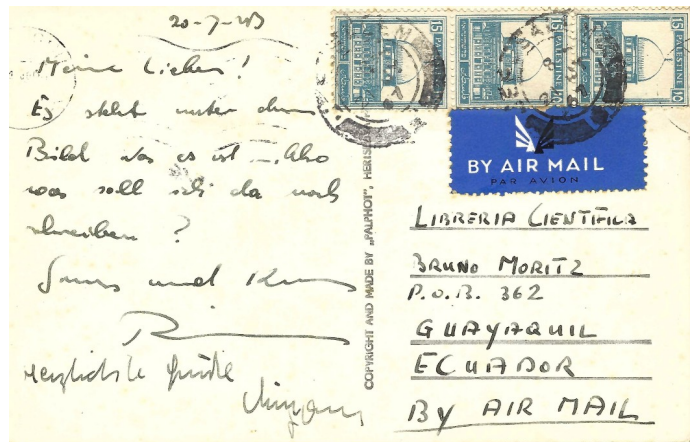 Meine Lieben!
Es steht unter dem
Bild was es ist. Also
was soll ich da noch
schreiben?
Gruss und Kuss
herzlichste Grüße
COPYRIGHT AND MADE BY „PALPHOT", HERZ
PALESTINE
15
PALESTINE
15
PALESTINE
15
BY AIR MAIL
PAR AVION
LIBRERIA CIENTIFICA
BRUNO MORITZ
P.O.B. 362
GUAYAQUIL
ECUADOR
BY AIR MAIL